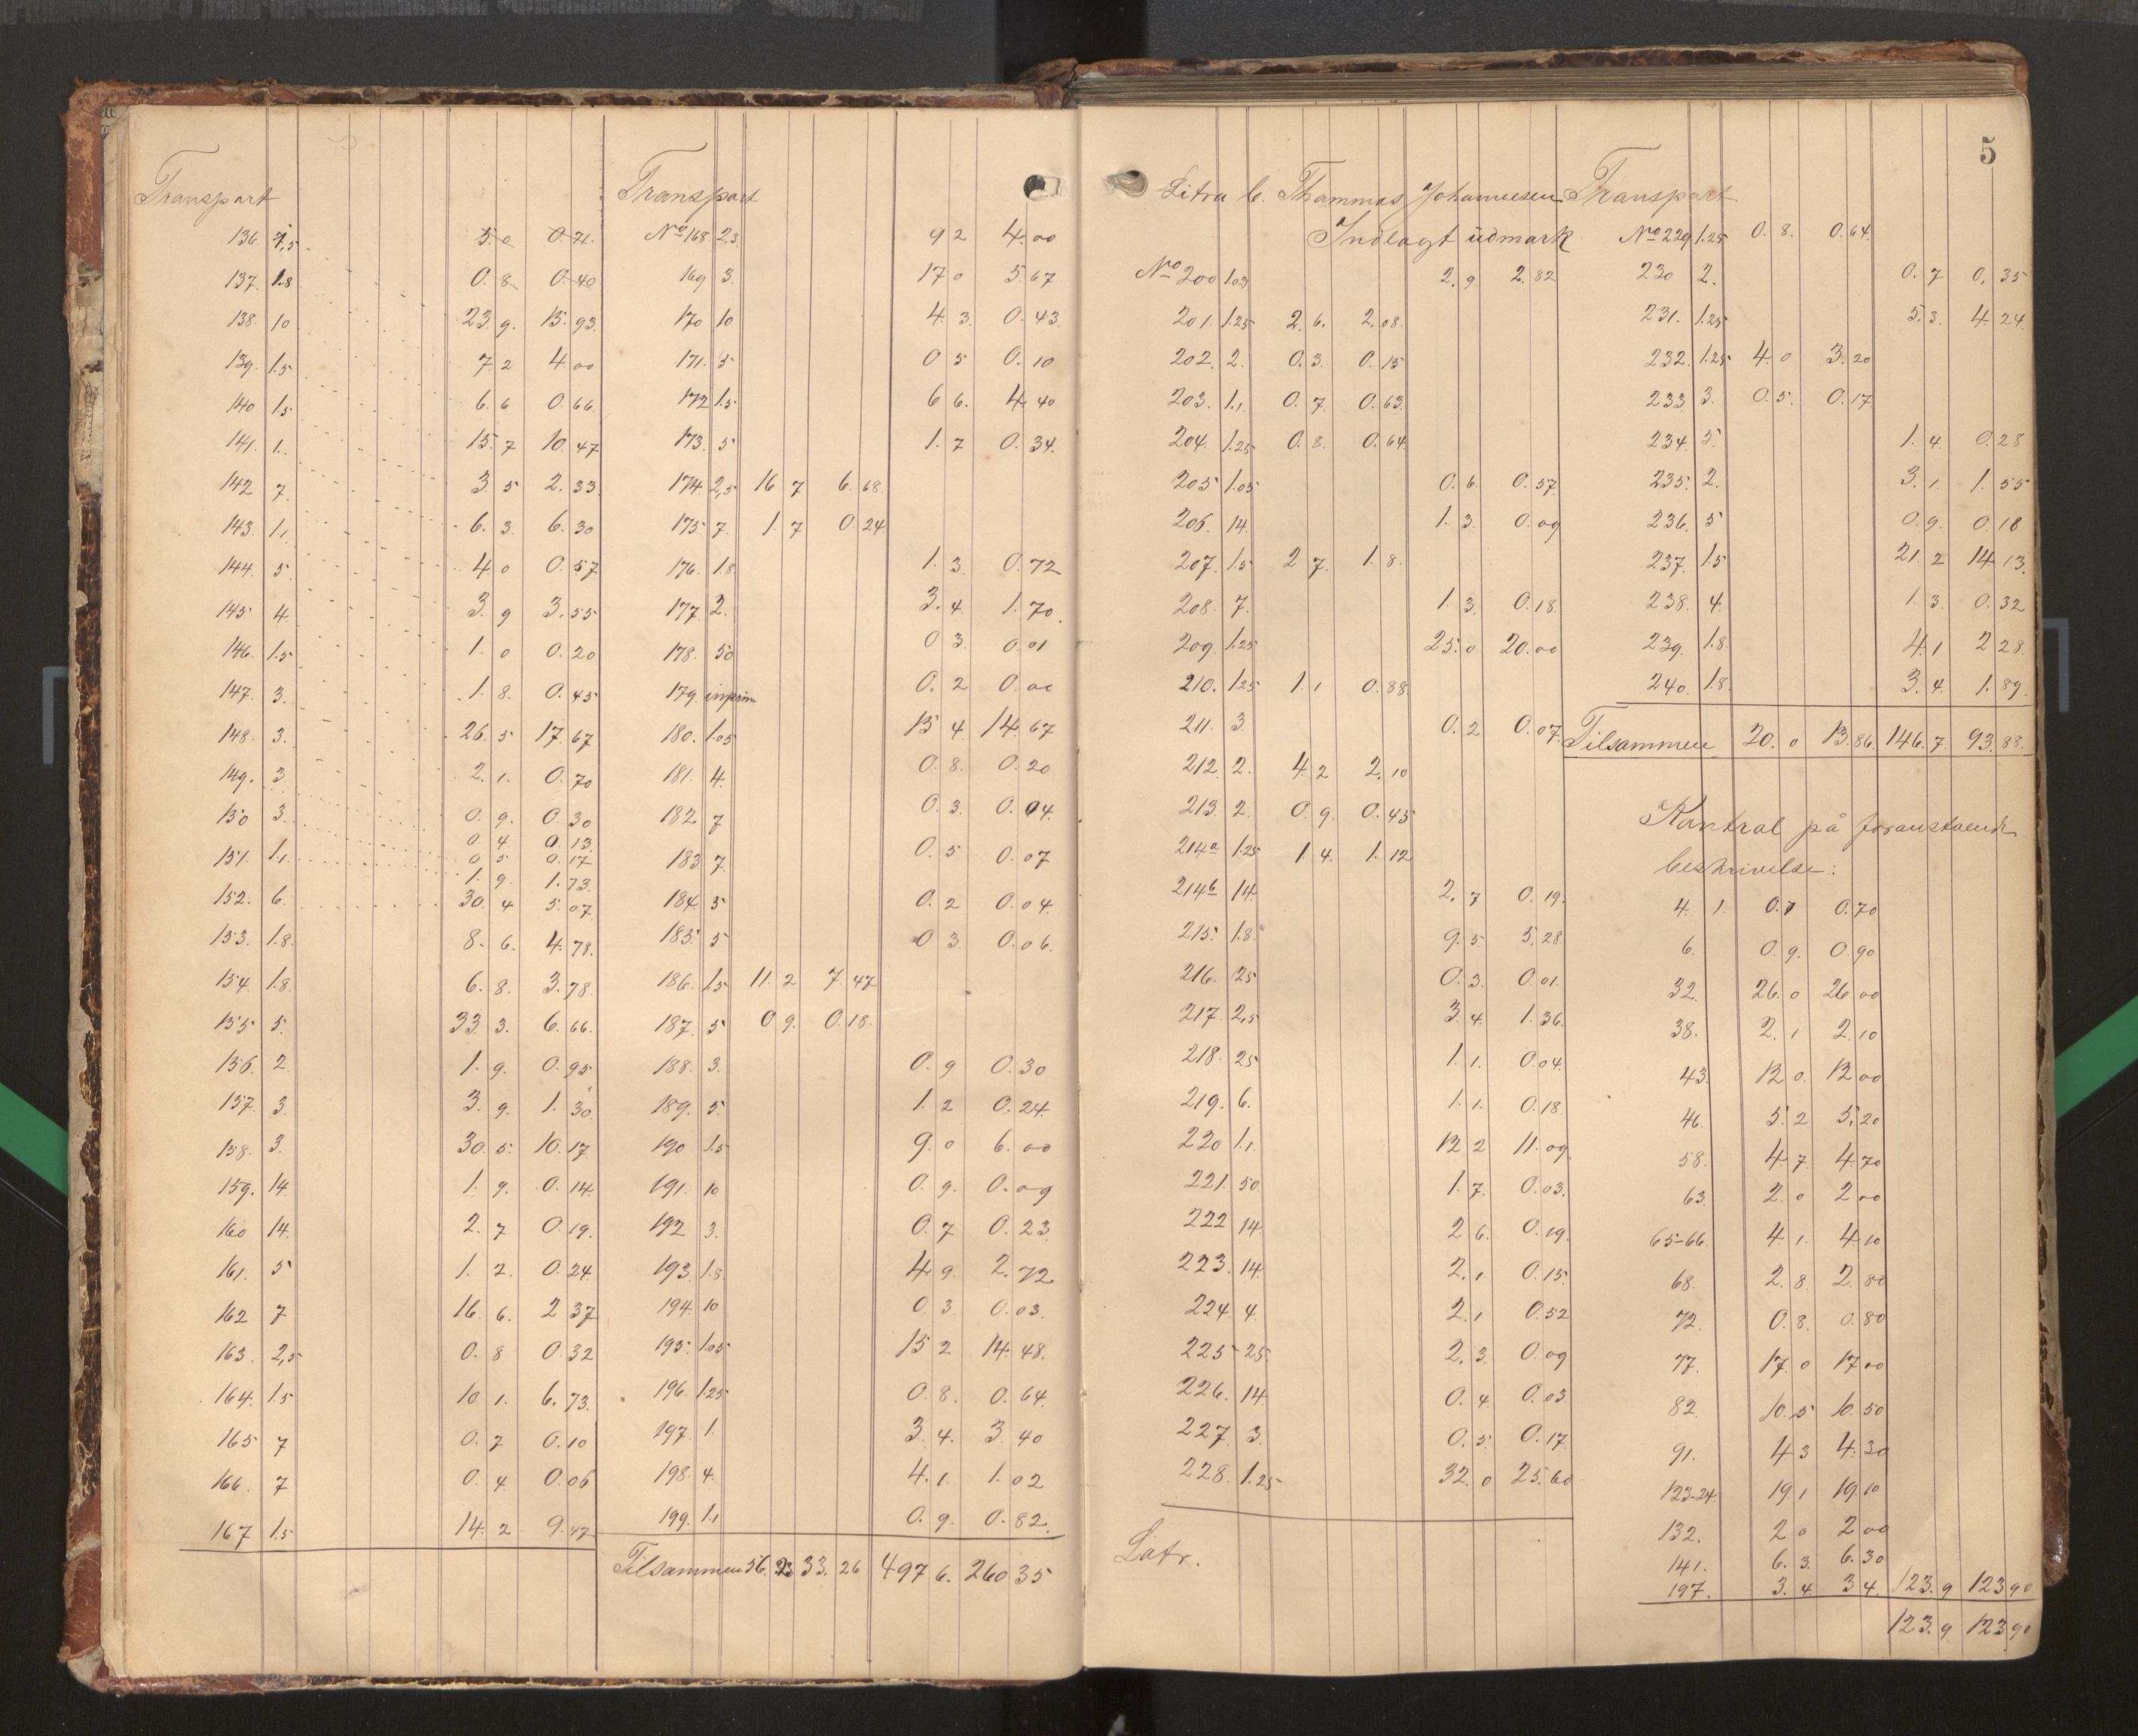 Transport
136 1,5 5.0 0.71.
137. 1.8 0.8 0.40
138. 10 23.9. 15.93.
139. 1.5 7 2 4.00
140 1.5 6.6 0.66.
141. 1. 15.7 10.47
142 7. 3.5 2.33.
143. 1.1 6.3. 6.30
144. 5. 4.0 0.57
145 4. 3.9 3.55
146. 1.5 1.0 0.20
147. 3. 1.8. 0.45
148. 3. 26.5 17.67
149. 3 2.1. 0.70
150 3. 0.9. 0.30
0.4 0.13.
151. 1.1 0.5 0.17
1.9. 1.73.
152. 6. 30.4 5.07
153. 1.8. 8.6. 4.78.
154. 1.8. 6.8. 3.78
155 5. 33.3. 6.66.
156. 2 1.9. 0.95
157. 3. 3.9. 1.30
158. 3. 30.5. 10.17
159. 14. 1.9. 0.14.
160 14. 2.7 0.19.
161. 5 1.2. 0.24
162 7 16.6. 2 37
163. 2,5 0.8 0.32
164. 1.5 10 1. 6.73.
165 7 0.7 0.10
166. 7 0.4 0.06
167 1.5 14.2 9.47
Transport
No 168. 2,3 9 2 4.00
169 3. 17 0 5.67
170 10 4.3. 0.43.
171. 5 0 5 0.10
172 1.5 6 6. 4.40
173. 5 1.7 0.34.
174. 2,5 16 7 6.68.
175 7. 1.7 0.24
176. 1.8. 1.3. 0.72
177 2. 3.4 1.70.
178. 50 0 3. 0.01
179. 0.2 0.00
180. 1.05 15 4 14.67
181. 4. 0.8. 0.20
182. 7 0.3. 0.04.
183 7. 0.5 0.07
184. 5 0.2 0.04.
185. 5 0 3 0.06.
186. 1.5 11.2 7.47
187. 5 0 9. 0.18.
188. 3. 0.9 0.30
189. 5. 1.2 0.24.
190 1.5 9.0 6.00
191. 10 0.9. 0.09
192 3. 0.7 0.23.
193. 1.8 4 9 2.72
194. 10 0.3. 0.03.
195. 1.05 15 2 14.48.
196. 1.25 0.8. 0.64.
197. 1. 3.4. 3.40
198. 4. 4.1. 1.02
199. 1.1 0.9. 0.82.
Tilsammen 56. 33.26 497 6. 260 35
Litra C. Thommas Johannesen
Indlagt udmark
No 200 1.03 2.9 2.82
201. 1.25 2.6. 2.08.
202. 2. 0.3. 0.15
203. 1.1. 0.7. 0.63.
204. 1.25 0.8. 0.64.
205 1.05 0.6. 0.57.
206. 14. 1.3. 0.09
207. 1.5 2 7. 1.8.
208. 7. 1.3. 0.18.
209. 1.25 25.0 20.00
210. 1.25 1.1 0.88.
211. 3. 0.2 0.07.
212. 2. 4 2 2.10
213 2. 0.9. 0.45
214a 1.25 1.4. 1.12
214b 14. 2.7 0.19.
215. 1.8. 9.5 5.28.
216. 25 0.3. 0.01.
217. 2,5 3.4. 1.36.
218. 25 1.1. 0.04.
219. 6. 1.1. 0.18.
220 1.1. 12 2 11.09.
221. 50. 1.7. 0.03.
222 14. 2 6. 0.19.
223. 14. 2.1 0.15.
224 4. 2.1 0.52
225 25. 2.3. 0.09
226. 14. 0.4 0.03
227. 3. 0.5. 0.17.
228. 1.25 32.0 25.60
Latr.
5
Transport
No 229 1.25 0.8. 0.64.
230 2. 0.7 0.35
231. 1.25 5.3. 4.24.
232. 1.25 4.0 3.20
233 3. 0.5. 0.17.
234. 5. 1.4. 0.28
235. 2. 3.1. 1.55
236. 5 0.9. 0.18
237. 1.5 21.2 14.13.
238. 4. 1.3. 0.32
239. 1.8. 4.1 2 28.
240. 1.8. 3.4. 1.89.
Tilsammen 20.0 13.86. 146.7. 93.88.
Kontrol på foranstaende
beskrivelse:
4. 1. 0.7 0.70
6. 0.9. 0.90
32. 26.0 26.00
38. 2.1 2.10
43. 12 0. 12.00
46. 5.2 5.20
58. 4 7. 4.70
63. 2.0 2.00
65-66. 4.1. 4.10
68. 2.8. 2.80
72. 0.8. 0.80
77. 17.0 17.00
82. 10.5 10.50
91. 4 3 4.30
123-24. 19.1 19.10
132. 2 0 2.00
141. 6.3. 6.30
197. 3.4. 3 4. 123.9 123 90
123.9 123.90